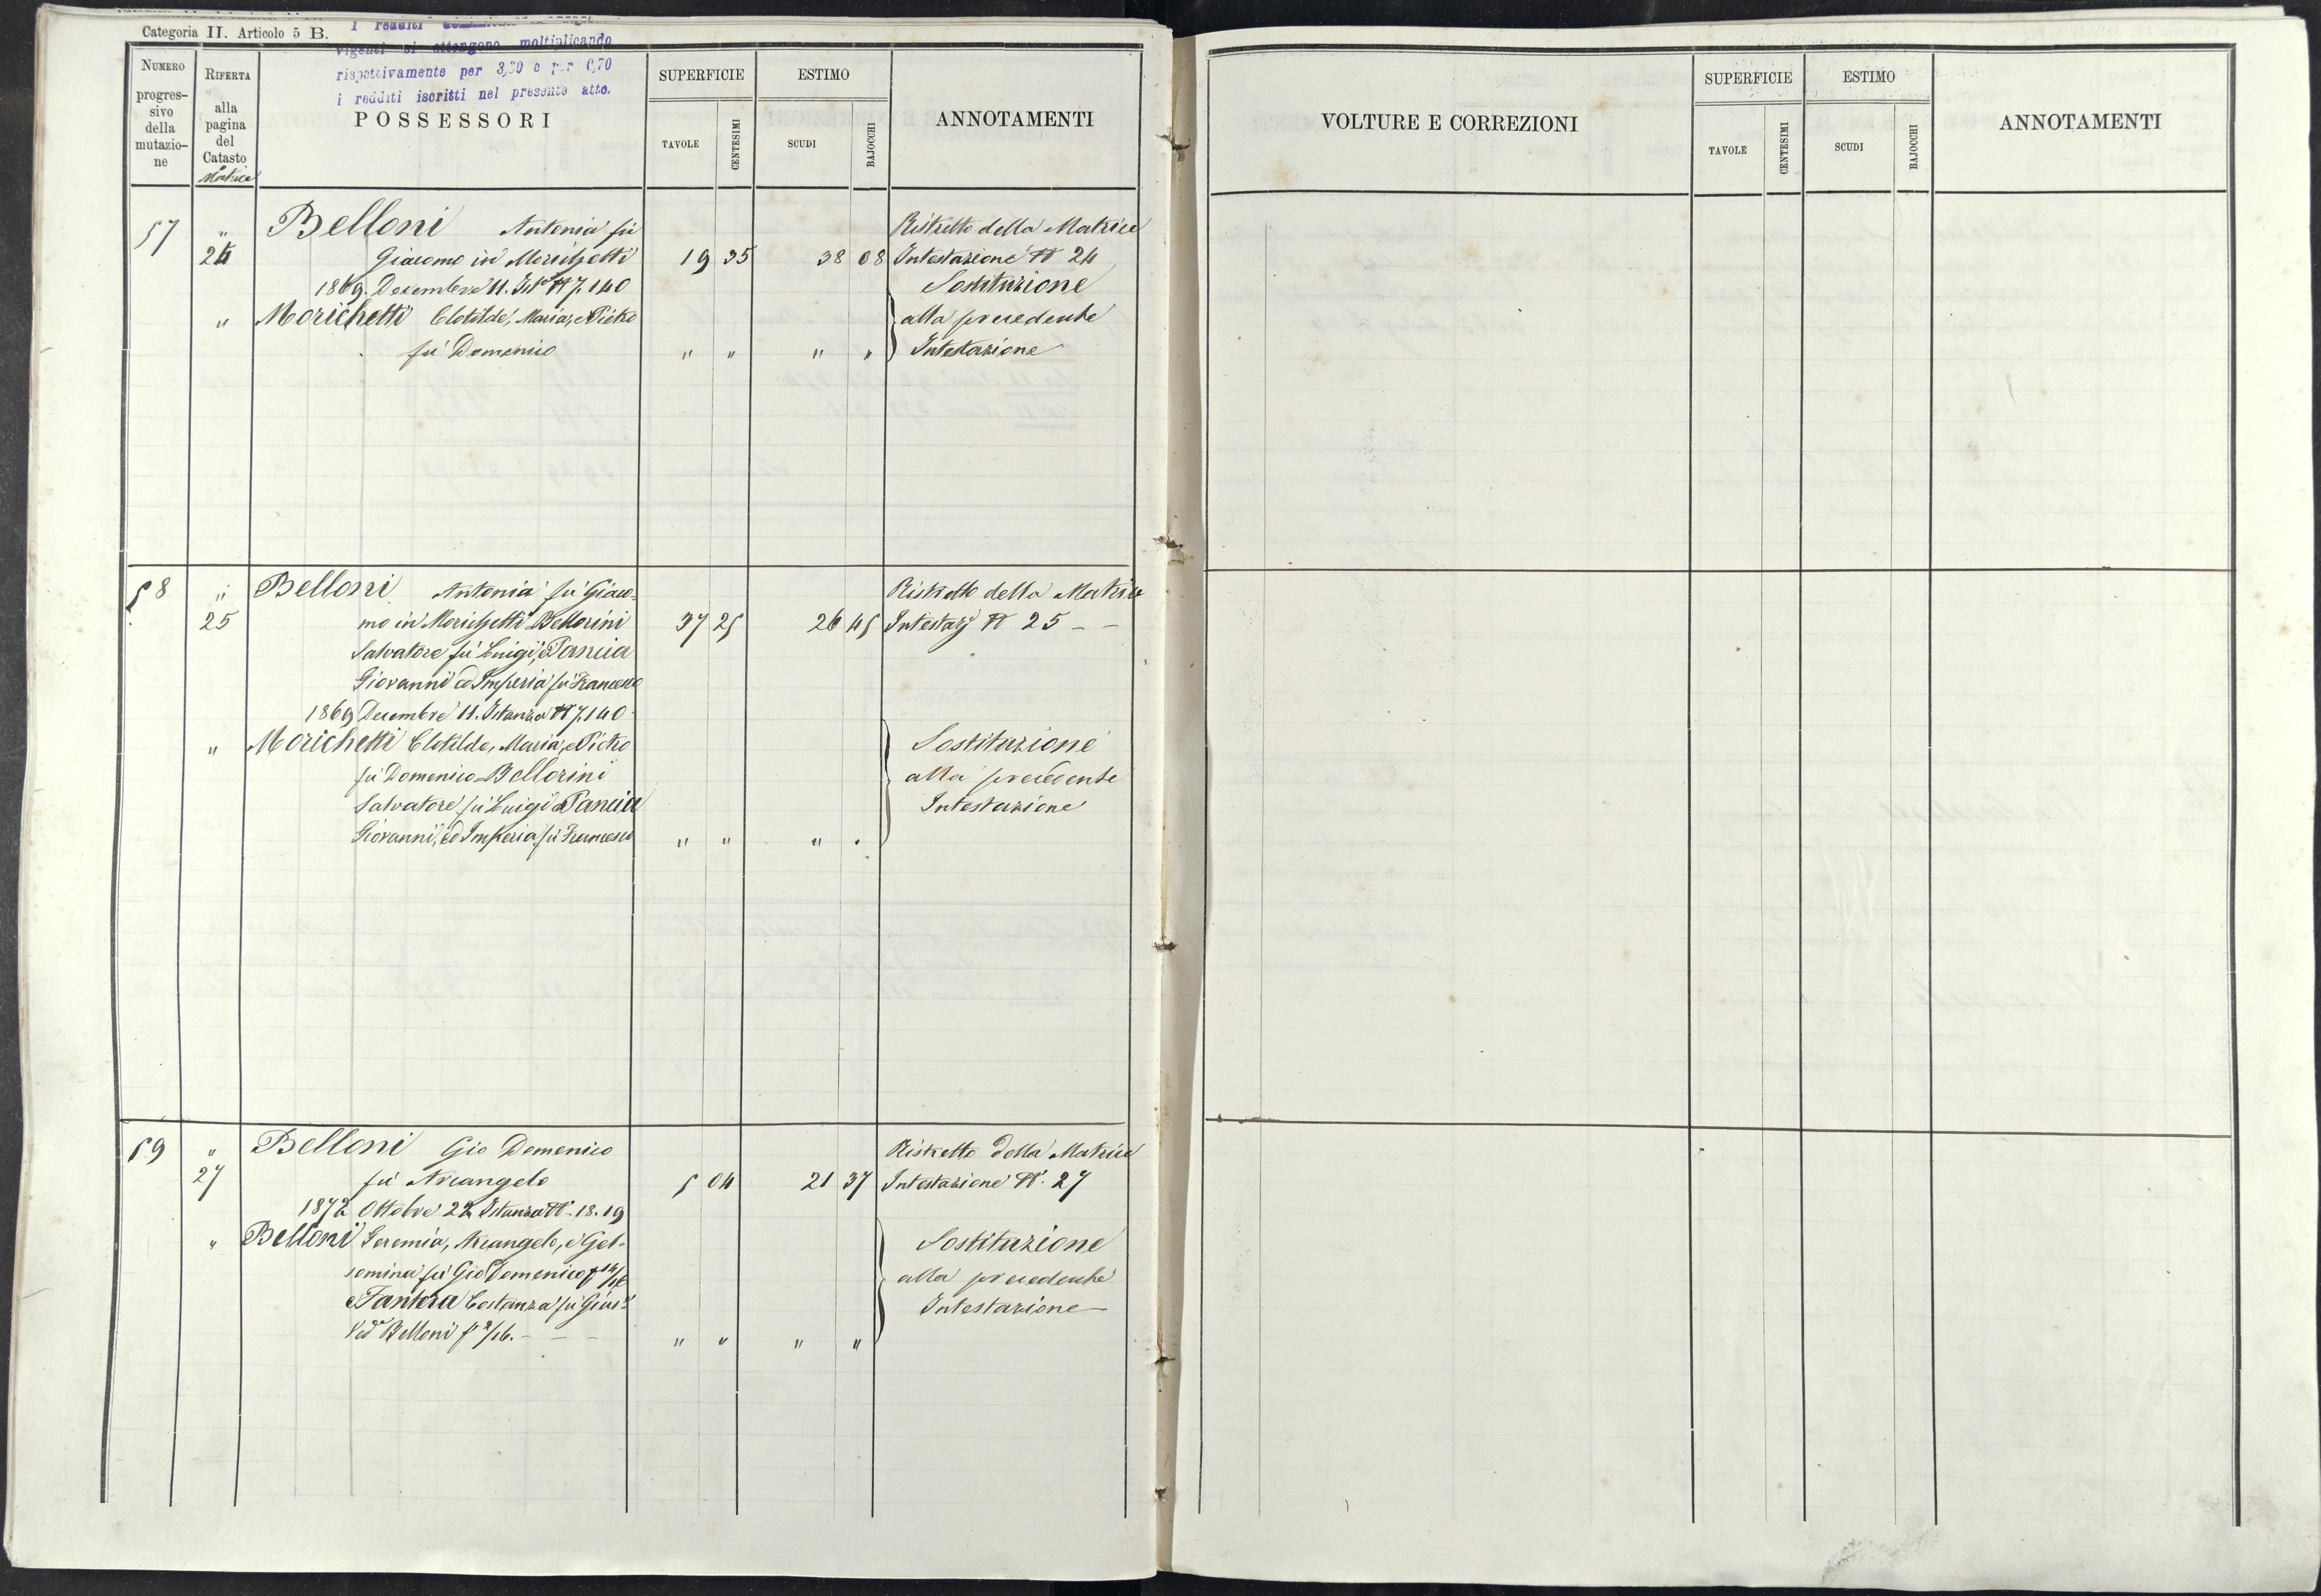 Categoria II. Articolo 5 B.
I redditi
vigenti si ottengono moltiplicando
rispettivamente per 3,30 e per 0,70
i redditi iscritti nel presente atto.
NUMERO progressivo della mutazione
RIFERTA alla pagina del Catasto Matrice
POSSESSORI
SUPERFICIE
TAVOLE
CENTESIMI
ESTIMO
SCUDI
BAJOCCHI
ANNOTAMENTI
57 " Belloni Antonia fù Ristretto della Matrice
24 Giacomo in Morichetti 19 35 38 08 Intestazione N 24
1869. Decembre 11. Ist N 7.140 Sostituzione
" Morichetti Clotilde, Maria, e Pietro alla precedente
fù Domenico " " " " Intestazione
58 " Belloni Antonia fù Giaco- Ristretto della Matrice
25 mo in Morichetti Bellorini 37 25 26 45 Intestaz N 25 - -
Salvatore fù Luigi, e Pancia
Giovanni ed Imperia fù Francesco
1869 Decembre 11. Istanza N 7.140
" Morichetti Clotilde, Maria, e Pietro Sostituzione
fù Domenico - Bellorini alla precedente
Salvatore fù Luigi e Pancia Intestazione
Giovanni, ed Imperia fù Francesco " " " "
59 " Belloni Gio Domenico Ristretto della Matrice
27 fù Arcangelo 5 04 21 37 Intestazione N. 27
1872 Ottobre 22 Istanza N. 18.19
" Belloni Geremia, Arcangelo, e Gel- Sostituzione
somina fù Gio Domenico p 14/16 alla precedente
e Costanza fù Gius. Intestazione -
Ved Belloni p 2/16. - - - " " " "
VOLTURE E CORREZIONI
SUPERFICIE
TAVOLE
CENTESIMI
ESTIMO
SCUDI
BAJOCCHI
ANNOTAMENTI